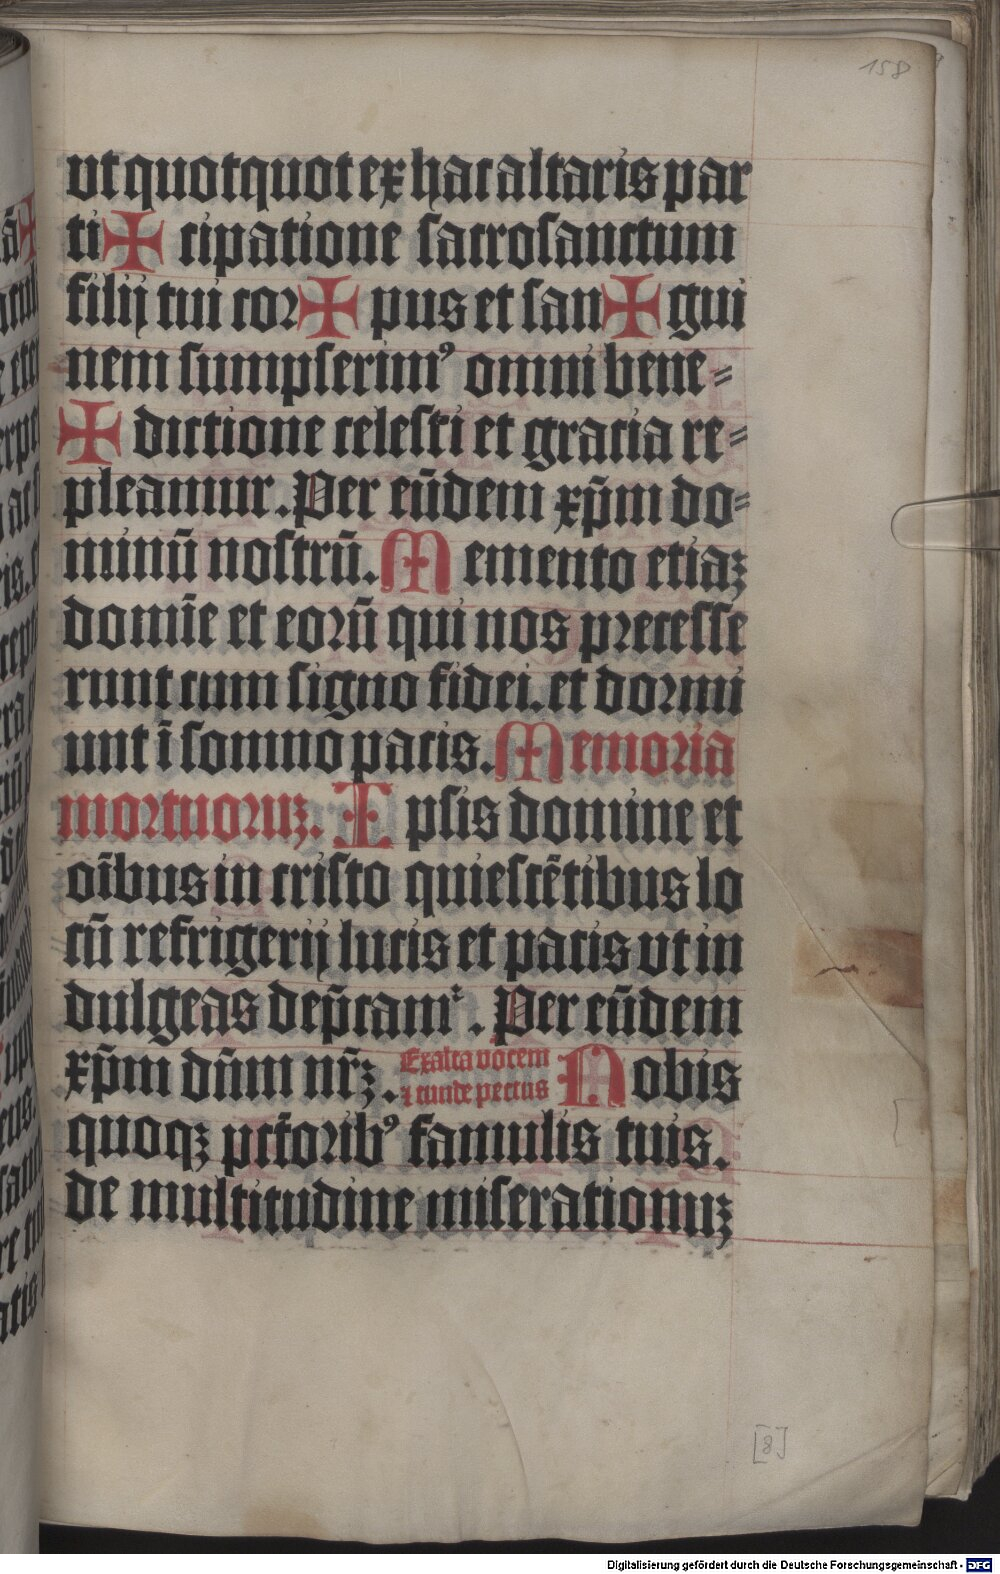 158
vt quotquot ex hac altaris par
ti ✠ cipatione sacrosanctum
filij tui cor ✠ pus et san ✠ gui
nem sumpserimꝰ omni bene=
✠ dictione celesti et gracia re=
pleamur. Per eūdem xp̄m do=
minū nostrū. Memento etiaꝫ
domīe et eorū qui nos precesse
runt cum signo fidei. et dormi
unt ī somno pacis. Memoria
mortuoruꝫ. Ipsis domine et
oībus in cristo quiescētibus lo
cū refrigerij lucis et pacis vt in
dulgeas dep̄camͬ. Per eūdem
xp̄m dūm nr̄ꝫ. Exalta vocem
⁊ tunde pectus Nobis
quoqꝫ pctōribꝰ famulis tuis.
de multitudine miserationuꝫ
[8]
Digitalisierung gefördert durch die Deutsche Forschungsgemeinschaft - DFG